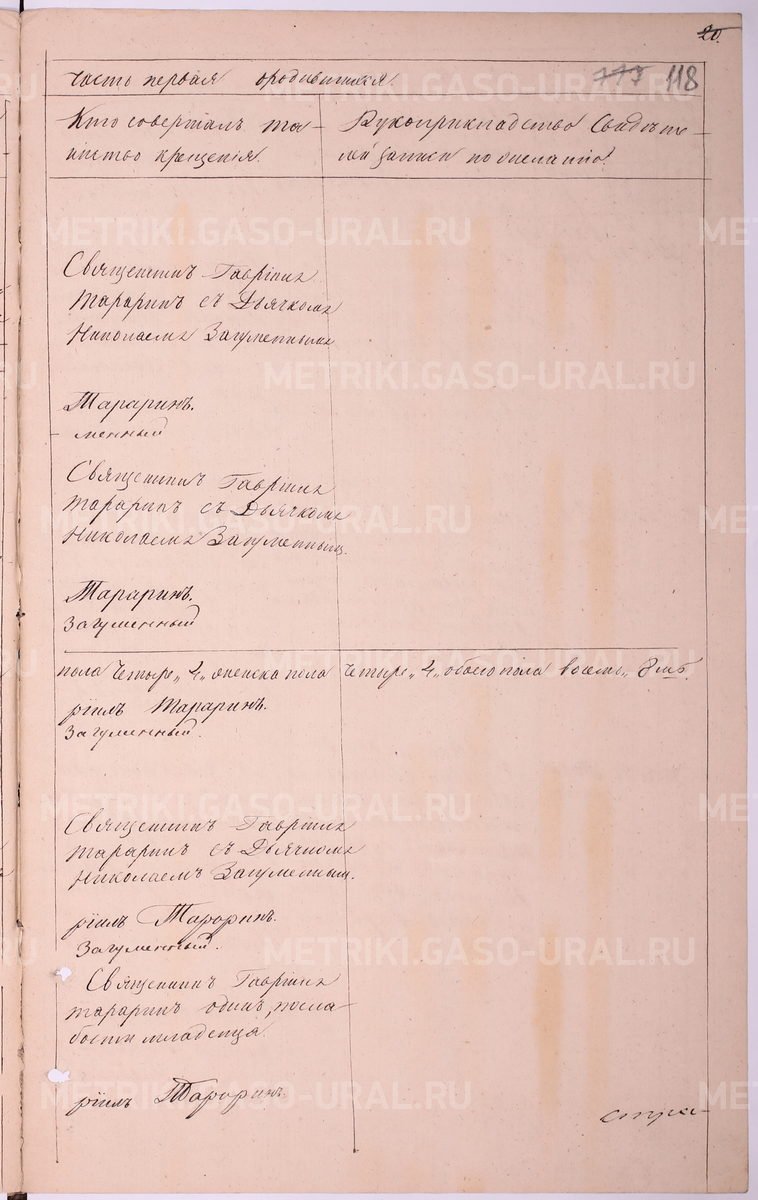 20.
Часть первая о родившихся. 113 118
Кто совершалъ та-
инство крещенія.
Рукоприкладство Свидѣте-
лей записи по желанію.
Священникъ Гавріилъ
Тараринъ съ Дьячкомъ
Николаемъ Загуменнымъ
Тараринъ.
менный
Священникъ Гавріилъ
Тараринъ съ Дьячкомъ
Николаемъ Загуменнымъ.
Тараринъ.
Загуменный
пола Четыре „4„ женска пола Четыре „4„ обоего пола восемь „8„
ріилъ Тараринъ.
Загуменный.
Священникъ Гавріилъ
Тараринъ съ Дьячкомъ
Николаемъ Загуменным.
ріилъ Тараринъ.
Загуменный.
Священникъ Гавріилъ
Тараринъ одинъ, по сла-
бости младенца.
ріилъ Тараринъ.
METRIKI.GASO-URAL.RU